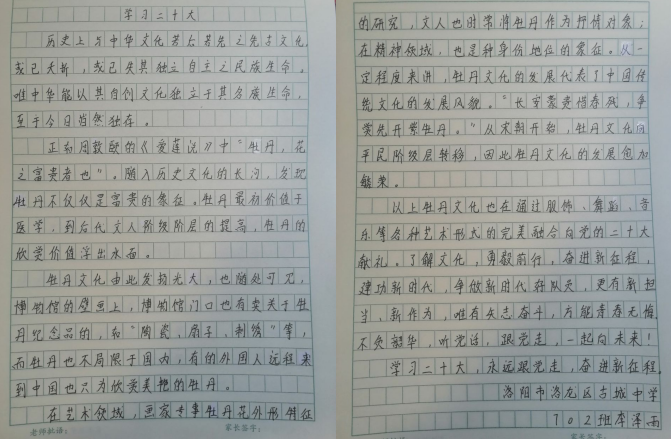 学习二十大
历史上与中华文化若后若先之先古文化，
或已夭折，或已失其独立自主之民族生命。
唯中华能以其自创文化独立于其名族生命，
至于今日岿然独存。
正如周敦颐的《爱莲说》中"牡丹，花
之富贵者也"。随入历史文化的长河，发现
牡丹不仅仅是富贵的象征。牡丹最初价值于
医学，到后代文人阶级阶层的提高，牡丹的
欣赏价值浮出水面。
牡丹文化由此发扬光大，也随处可见，
博物馆的壁画上，博物馆门口也有卖关于牡
丹纪念品的，如"陶瓷、扇子、刺绣"等，
而牡丹也不局限于国内，有的外国人远程来
到中国也只为欣赏美艳的牡丹。
在艺术领域，画家专事牡丹花外形特征
老师批语： 家长签字：
的研究，文人也时常将牡丹作为抒情对象；
在精神领域，也是种身份地位的象征。从一
定程度来讲，牡丹文化的发展代表了中国传
统文化的发展风貌。"长安豪贵惜春残，争
赏先开紫牡丹。"从宋朝开始，牡丹文化向
平民阶级层转移，因此牡丹文化的发展愈加
繁荣。
以上牡丹文化也在通过服饰、舞蹈、音
乐等各种艺术形式的完美融合向党的二十大
献礼。了解文化，勇毅前行，奋进新征程，
建功新时代，争做新时代好队员，更有新担
当、新作为，唯有矢志奋斗，方能青春无悔，
不负韶华，听党话，跟党走，一起向未来！
学习二十大，永远跟党走，奋进新征程。
洛阳市洛龙区古城中学
702班李泽雨
家长签字：